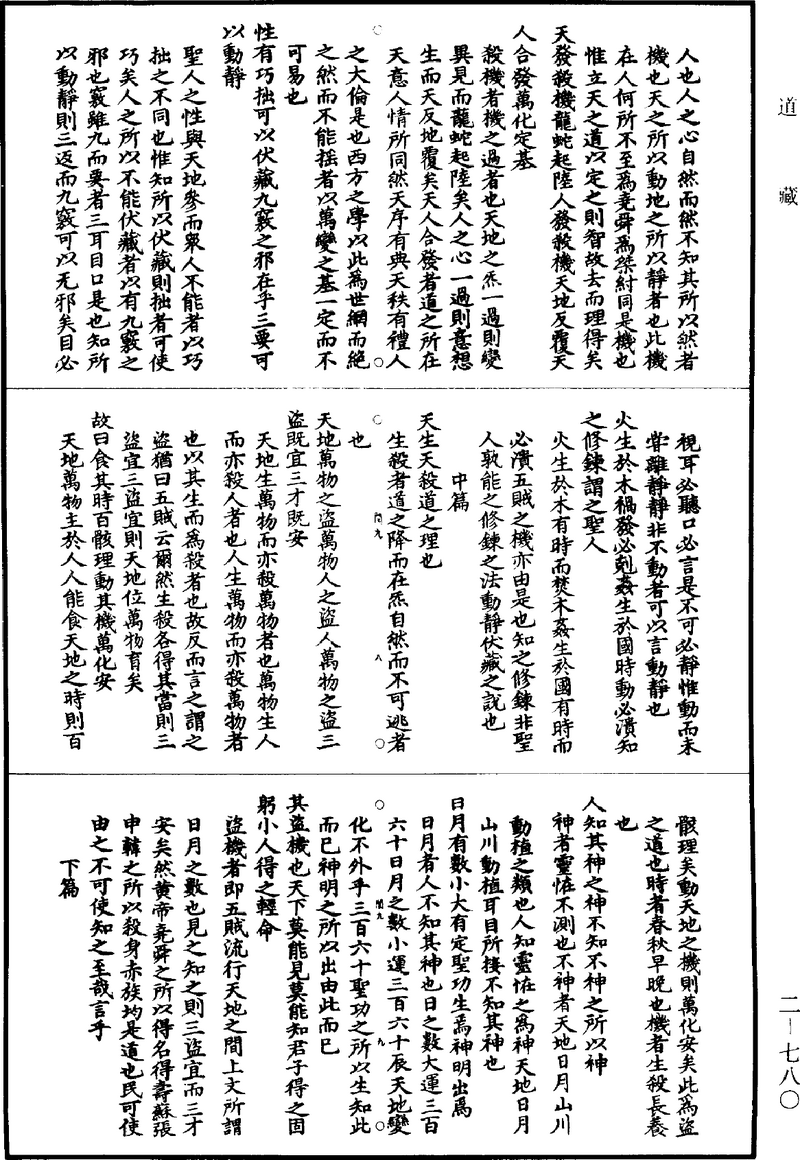 道藏
人也人之心自然而然不知其所以然者
機也天之所以動地之所以靜者也此機
在人何所不至為堯舜為桀紂同是機也
惟立天之道以定之則智故去而理得矣
天發殺機龍蛇起陸人發殺機天地反覆天
人合發萬化定基
殺機者機之過者也天地之炁一過則變
異見而龍蛇起陸矣人之心一過則意想
生而天反地覆矣天人合發者道之所在
天意人情所同然天序有典天秩有禮人
之大倫是也西方之學以此為世網而絕
之然而不能搖者以萬變之基一定而不
可易也
性有巧拙可以伏藏九竅之邪在乎三要可
以動靜
聖人之性與天地參而眾人不能者以巧
拙之不同也惟知所以伏藏則拙者可使
巧矣人之所以不能伏藏者以有九竅之
邪也竅雖九而要者三耳目口是也知所
以動靜則三返而九竅可以无邪矣目必
視耳必聽口必言是不可必靜惟動而未
嘗離靜靜非不動者可以言動靜也
火生於木禍發必剋姦生於國時動必潰知
之修鍊謂之聖人
火生於木有時而焚木姦生於國有時而
必潰五賊之機亦由是也知之修鍊非聖
人孰能之修鍊之法動靜伏藏之說也
中篇
天生天殺道之理也
生殺者道之降而在炁自然而不可逃者
也
天地萬物之盜萬物人之盜人萬物之盜三
盜既宜三才既安
天地生萬物而亦殺萬物者也萬物生人
而亦殺人者也人生萬物而亦殺萬物者
也以其生而為殺者也故反而言之謂之
盜猶曰五賊云爾然生殺各得其當則三
盜宜三盜宜則天地位萬物育矣
故曰食其時百骸理動其機萬化安
天地萬物主於人人能食天地之時則百
骸理矣動天地之機則萬化安矣此為盜
之道也時者春秋早晚也機者生殺長養
也
人知其神之神不知不神之所以神
神者靈怪不測也不神者天地日月山川
動植之類也人知靈怪之為神天地日月
山川動植耳目所接不知其神也
日月有數小大有定聖功生焉神明出焉
日月者人不知其神也日之數大運三百
六十日月之數小運三百六十辰天地變
化不外乎三百六十聖功之所以生知此
而已神明之所以出由此而已
其盜機也天下莫能見莫能知君子得之固
躬小人得之輕命
盜機者即五賊流行天地之間上文所謂
日月之數也見之知之則三盜宜而三才
安矣然黃帝堯舜之所以得名得壽蘇張
申韓之所以殺身赤族均是道也民可使
由之不可使知之至哉言乎
下篇
二－七八〇